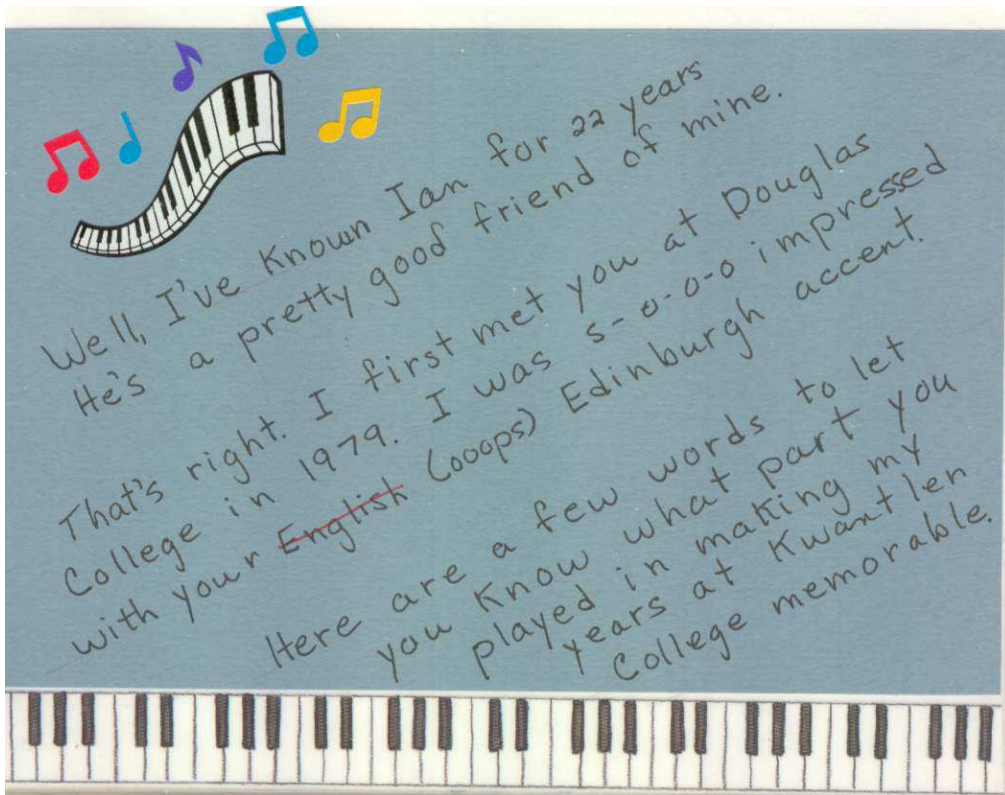 Well, I've Known Ian for 22 years
He's a pretty good friend of mine.
That's right. I first met you at Douglas
College in 1979. I was s-o-o-o impressed
with your English (ooops) Edinburgh accent.
Here are a few words to let
you know what part you
played in making my
years at Kwantlen
College memorable.